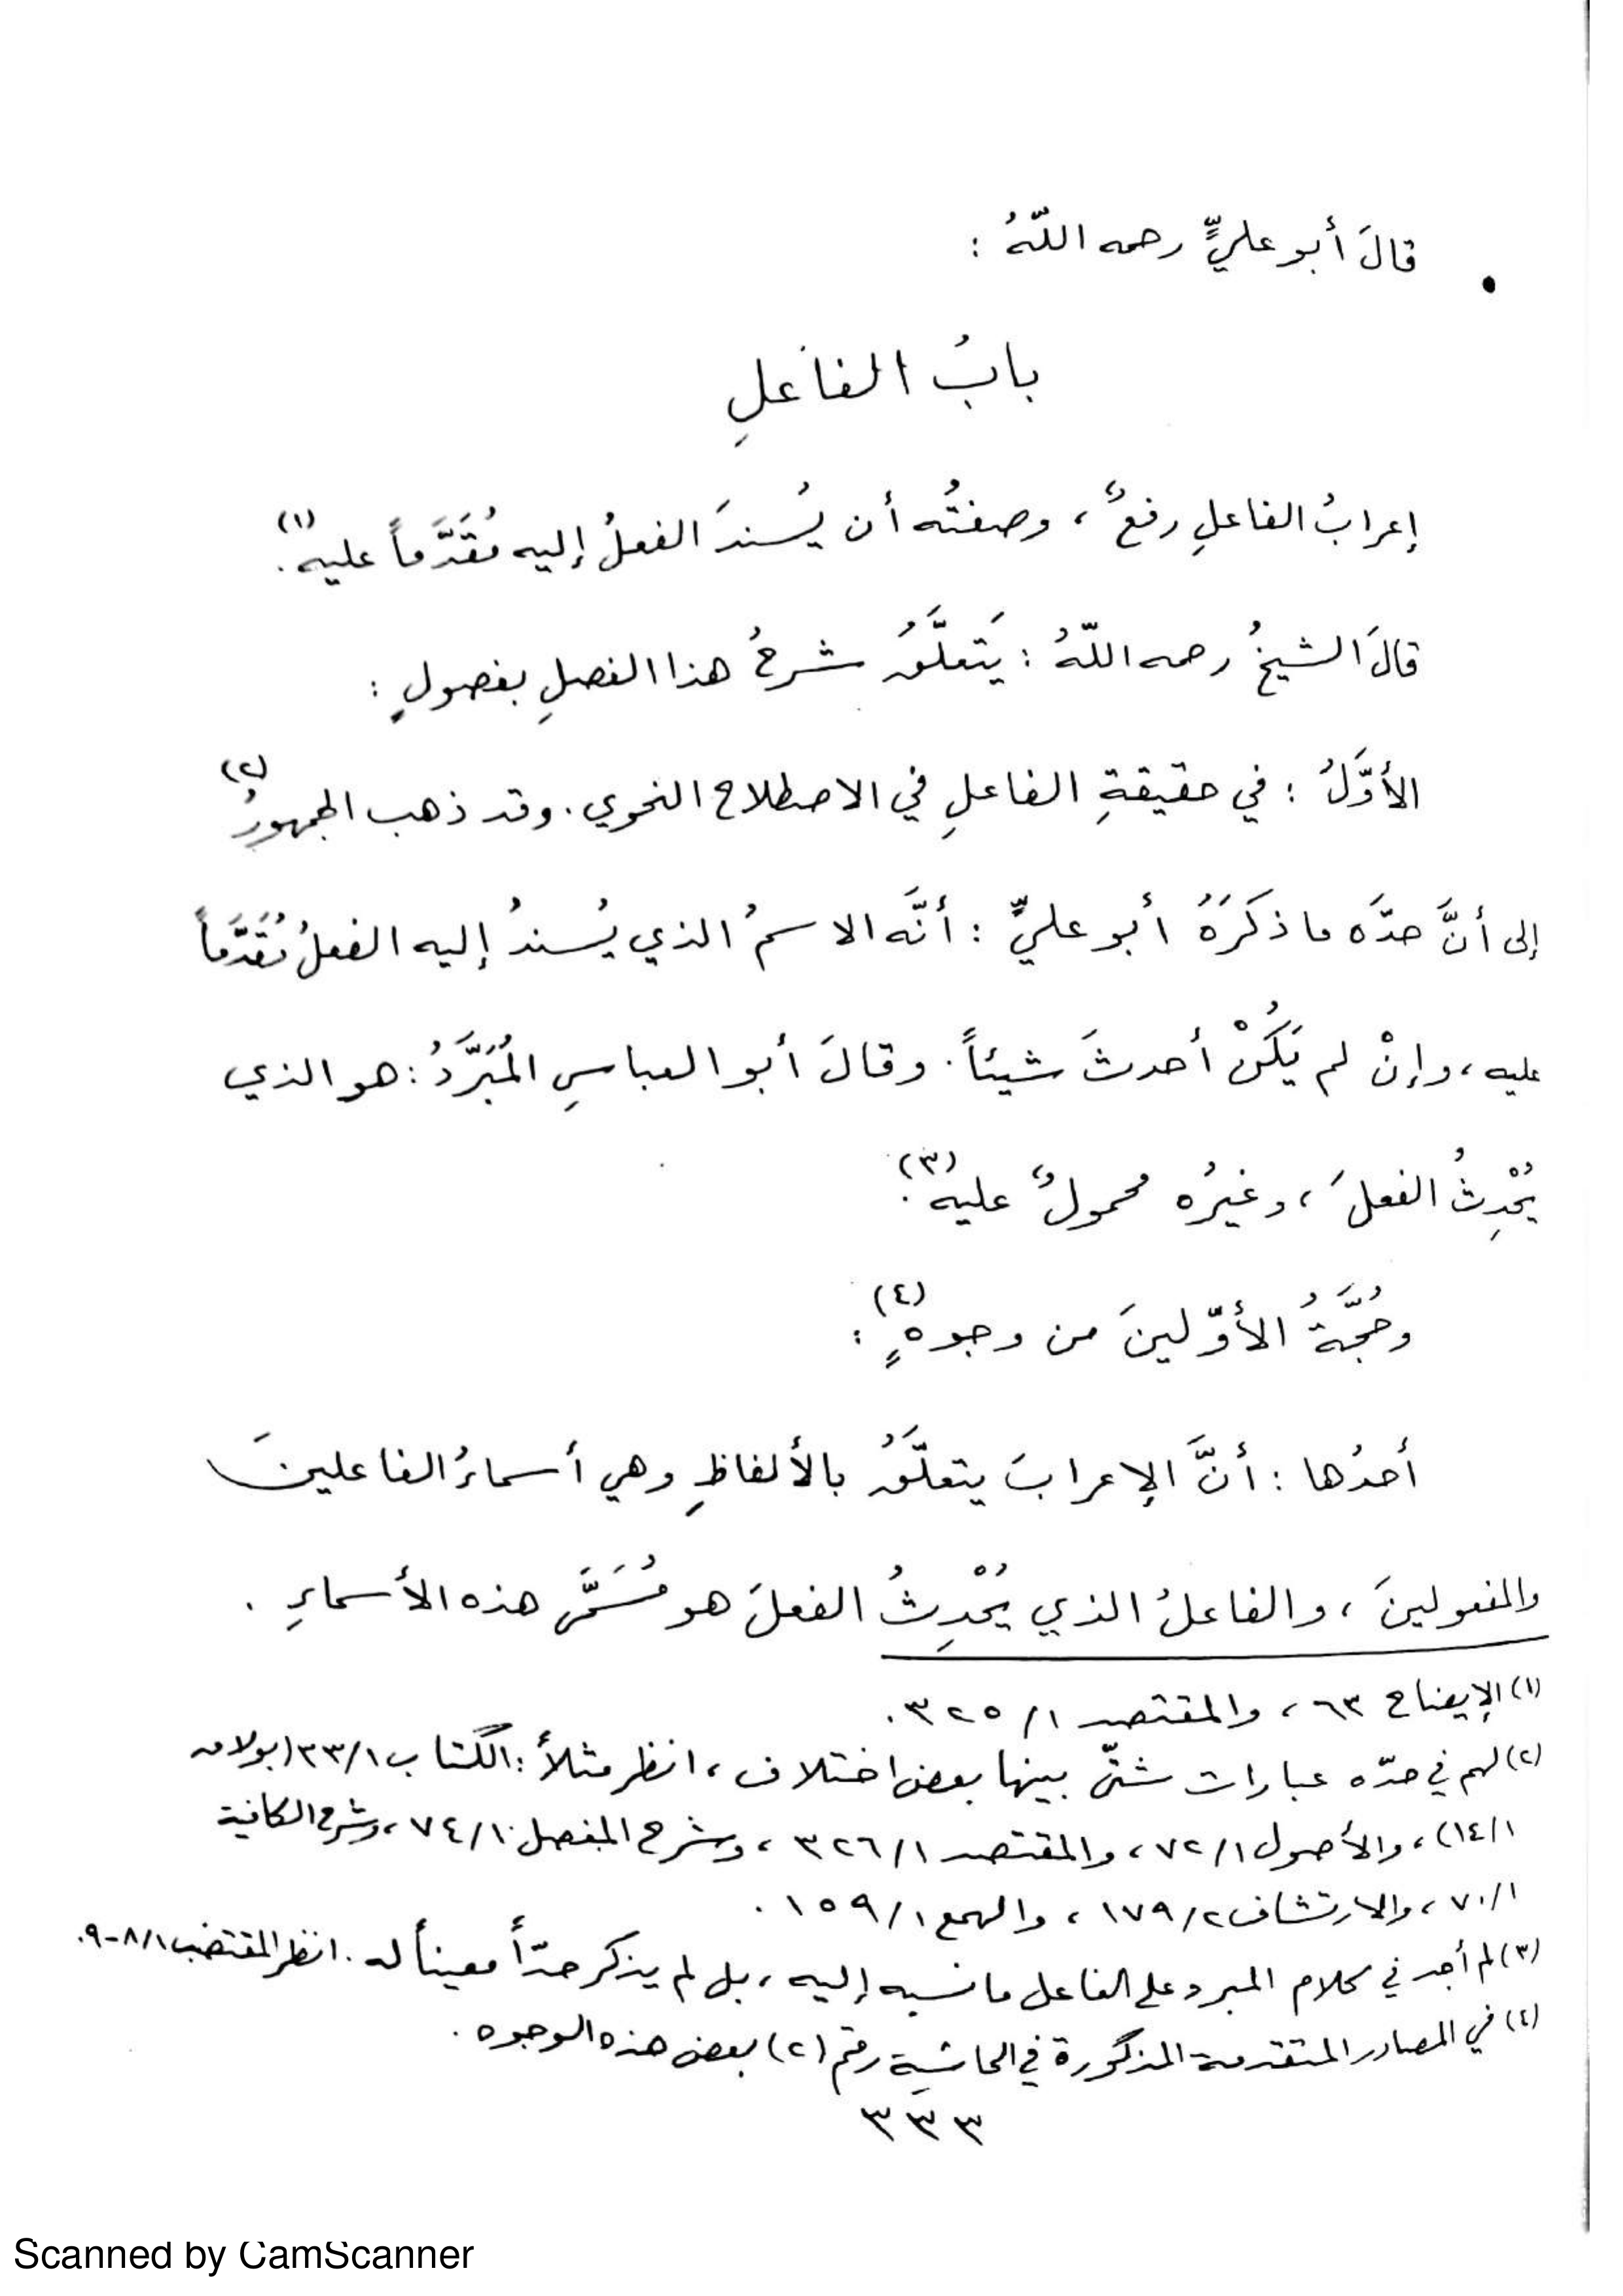 قالَ أبو عليٍّ رحمه اللّهُ :
بابُ الفاعلِ
إعرابُ الفاعلِ رفعٌ ، وصفتُه أن يُسندَ الفعلُ إليه مُقَدَّماً عليه(١).
قالَ الشيخُ رحمه اللّهُ : يَتعلَّقُ شرحُ هذا الفصلِ بفصولٍ :
الأوَّلُ : في حقيقةِ الفاعلِ في الاصطلاح النحوي . وقد ذهب الجمهورُ(٢)
إلى أنَّ حدَّه ما ذكَرَهُ أبو عليٍّ : أنَّه الاسمُ الذي يُسندُ إليه الفعلُ مُقَدَّماً
عليه ، وإنْ لم يَكُنْ أحدثَ شيئاً . وقالَ أبو العباسِ المُبَرَّدُ : هو الذي
يُحْدِثُ الفعلَ ، وغيرُه محمولٌ عليه(٣).
وحُجَّةُ الأوّلينَ من وجوهٍ(٤) :
أحدُها : أنَّ الإعرابَ يتعلَّقُ بالألفاظِ وهي أسماءُ الفاعلينَ
والمفعولينَ ، والفاعلُ الذي يُحْدِثُ الفعلَ هو مُسَمَّى هذه الأسماءِ .
(١) الإيضاح ٦٣ ، والمقتصد ١/ ٣٢٥.
(٢) لهم في حدّه عبارات شتّى بينها بعض اختلاف ، انظر مثلاً : الكتاب ١/ ٣٣ (بولاق
١/ ١٤) ، والأصول ١/ ٧٢ ، والمقتصد ١/ ٣٢٦ ، وشرح المفصل ١/ ٧٤ ، وشرح الكافية
١/ ٧٠ ، والارتشاف ٢/ ١٧٩ ، والهمع ١/ ١٥٩ .
(٣) لم أجد في كلام المبرد على الفاعل ما نسبه إليه ، بل لم يذكر حدّاً معيناً له . انظر المقتضب ١/ ٨-٩.
(٤) في المصادر المتقدمة المذكورة في الحاشية رقم (٢) بعض هذه الوجوه .
٣٣٣
Scanned by CamScanner